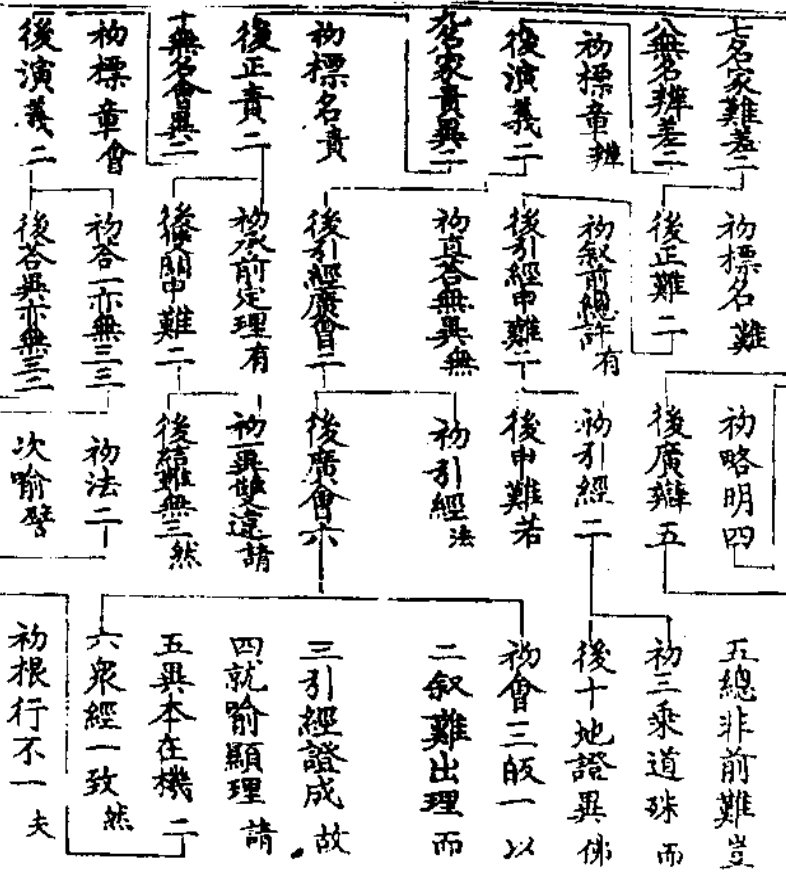 七名家難差二
八無名辨差二
初標章 辨
後演義二
九名家責異二
初標名責
後正責二
十無名會異二
初標章 會
後演義二
初標名 難
後正難二
初敘前總許 有
後引經申難二
初真答無異 無
後引經廣會二
初承前定理 有
後開申難二
初答一亦無三三
後答異亦無三二
初略明四
後廣辯五
初引經二
後申難 若
初引經 法
後廣會六
初一異雙遠 請
後結難無三 然
初法二
次喻 譬
五總非前難 豈
初三乘道殊 而
後十地證異 佛
初會三皈一 以
二敘難出理 而
三引經證成 故
四就喻顯理 請
五異本在機二
六衆經一致 然
初根行不一 夫